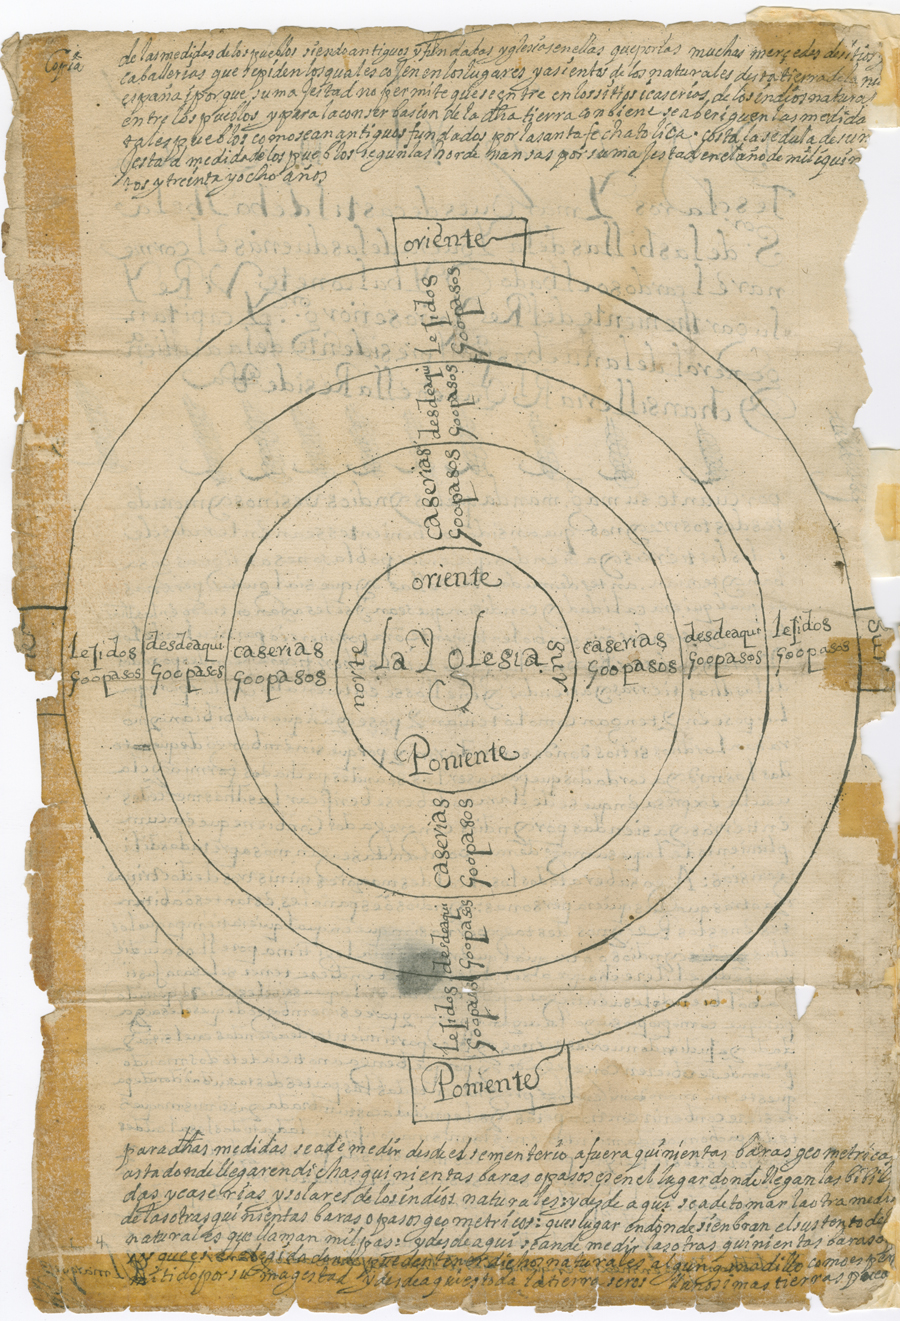 Copia
de las medidas de los pueblos siendo antiguos y fundados yglesias en ellas que por las muchas mercedes de sitios y
caballerias que se piden los quales caen en los lugares y asientos de los naturales desta tierra de la nu
españa i porque su majestad no permite que se entre en los sitios i caserias de los indios natura
entre los pueblos, y para la conserbasion de la dha tierra combiene se aberiguen las medida
tales pueblos como sean antiguos fundados por la santa fe chatolica. costa la sedula de su m
jestad medida de los pueblos segun las hordenansas por su majestad en el año de mil i quin
tos y treinta y ocho años
oriente
lejidos
600 pasos
desdeaqui
600 pasos
caserias
600 pasos
oriente
lejidos
600 pasos
desdeaqui
600 pasos
caserias
600 pasos
norte
la Yglesia
sur
caserias
600 pasos
desdeaqui
600 pasos
lejidos
600 pasos
Poniente
caserias
600 pasos
desdeaqui
600 pasos
lejidos
600 pasos
Poniente
para dhas medidas se a de medir desde el sementerio afuera quinientas baras geometricas
asta donde llegaren dichas quinientas baras o pasos es en el lugar donde llegan las bibiē
das y caserias y solares de los indios naturales: y desde aqui se a de tomar la otra medi
de las otras quinientas baras o pasos geometricos: ques lugar en donde sienbran el sustento de
naturales que llaman milpas: y desde aqui se an de medir las otras quinientas baras o
y que es el exegido donde pueden tener dichos naturales algun ganadillo como es per
mitido por su magestad y desde aqui es toda la tierra